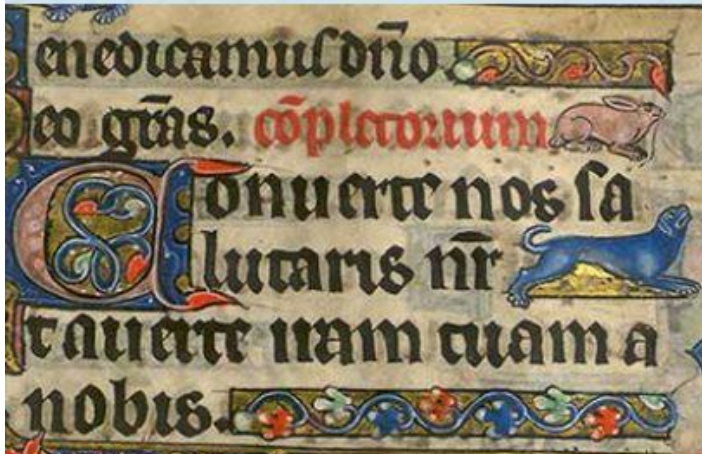 enedicamus dño.
eo grãs. cõpletorium
Conuerte nos sa
lutaris nr̄
t auerte iram tuam a
nobis.